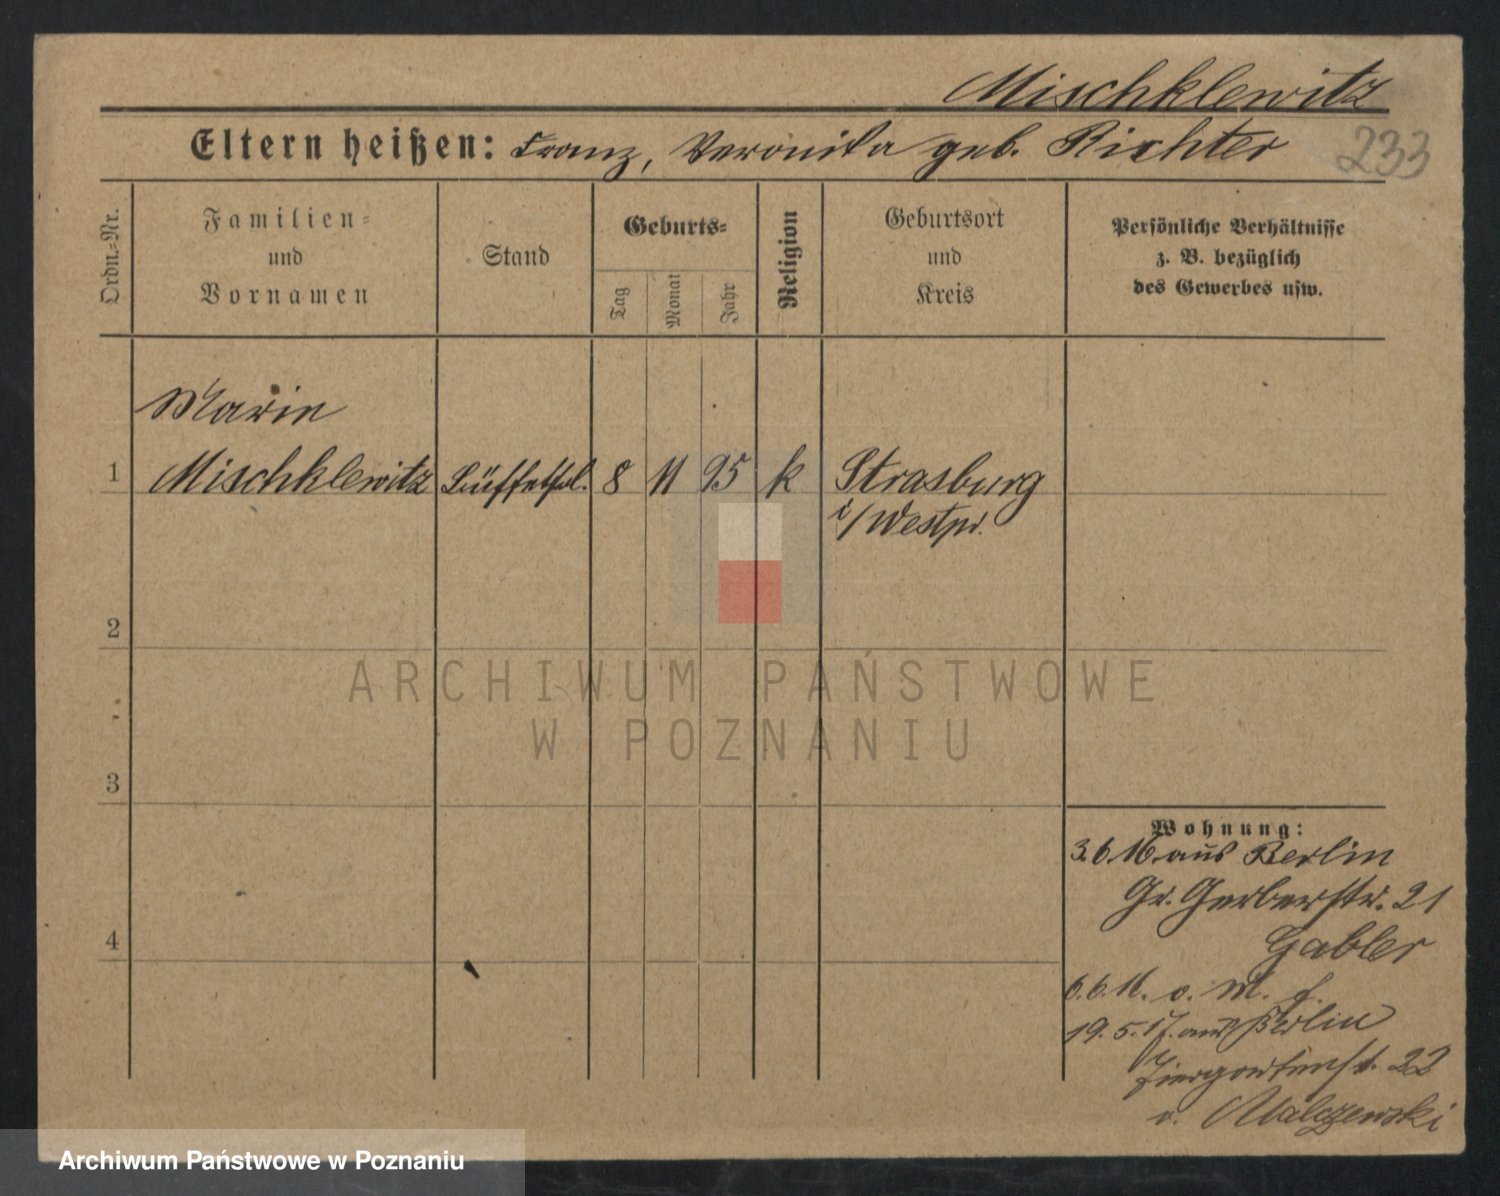 Mischklewitz
Eltern heißen: Franz, Veronika geb. Richter
233
Ordn.=Nr.
Familien=
und
Vornamen
Stand
Geburts=
Tag
Monat
Jahr
Religion
Geburtsort
und
Kreis
Persönliche Verhältnisse
z. B. bezüglich
des Gewerbes usw.
Marie
1 Mischklewitz Büffetfrl. 8 11 95 k Strasburg
i/Westpr.
2
ARCHIWUM PAŃSTWOWE
W POZNANIU
3
Wohnung:
3.6.16 aus Berlin
Gr. Gerberstr. 21
Gabler
4
6.6.16. o. M. f.
19.5.17. aus Berlin
Tiergartenst. 22
v. Malczewski
Archiwum Państwowe w Poznaniu